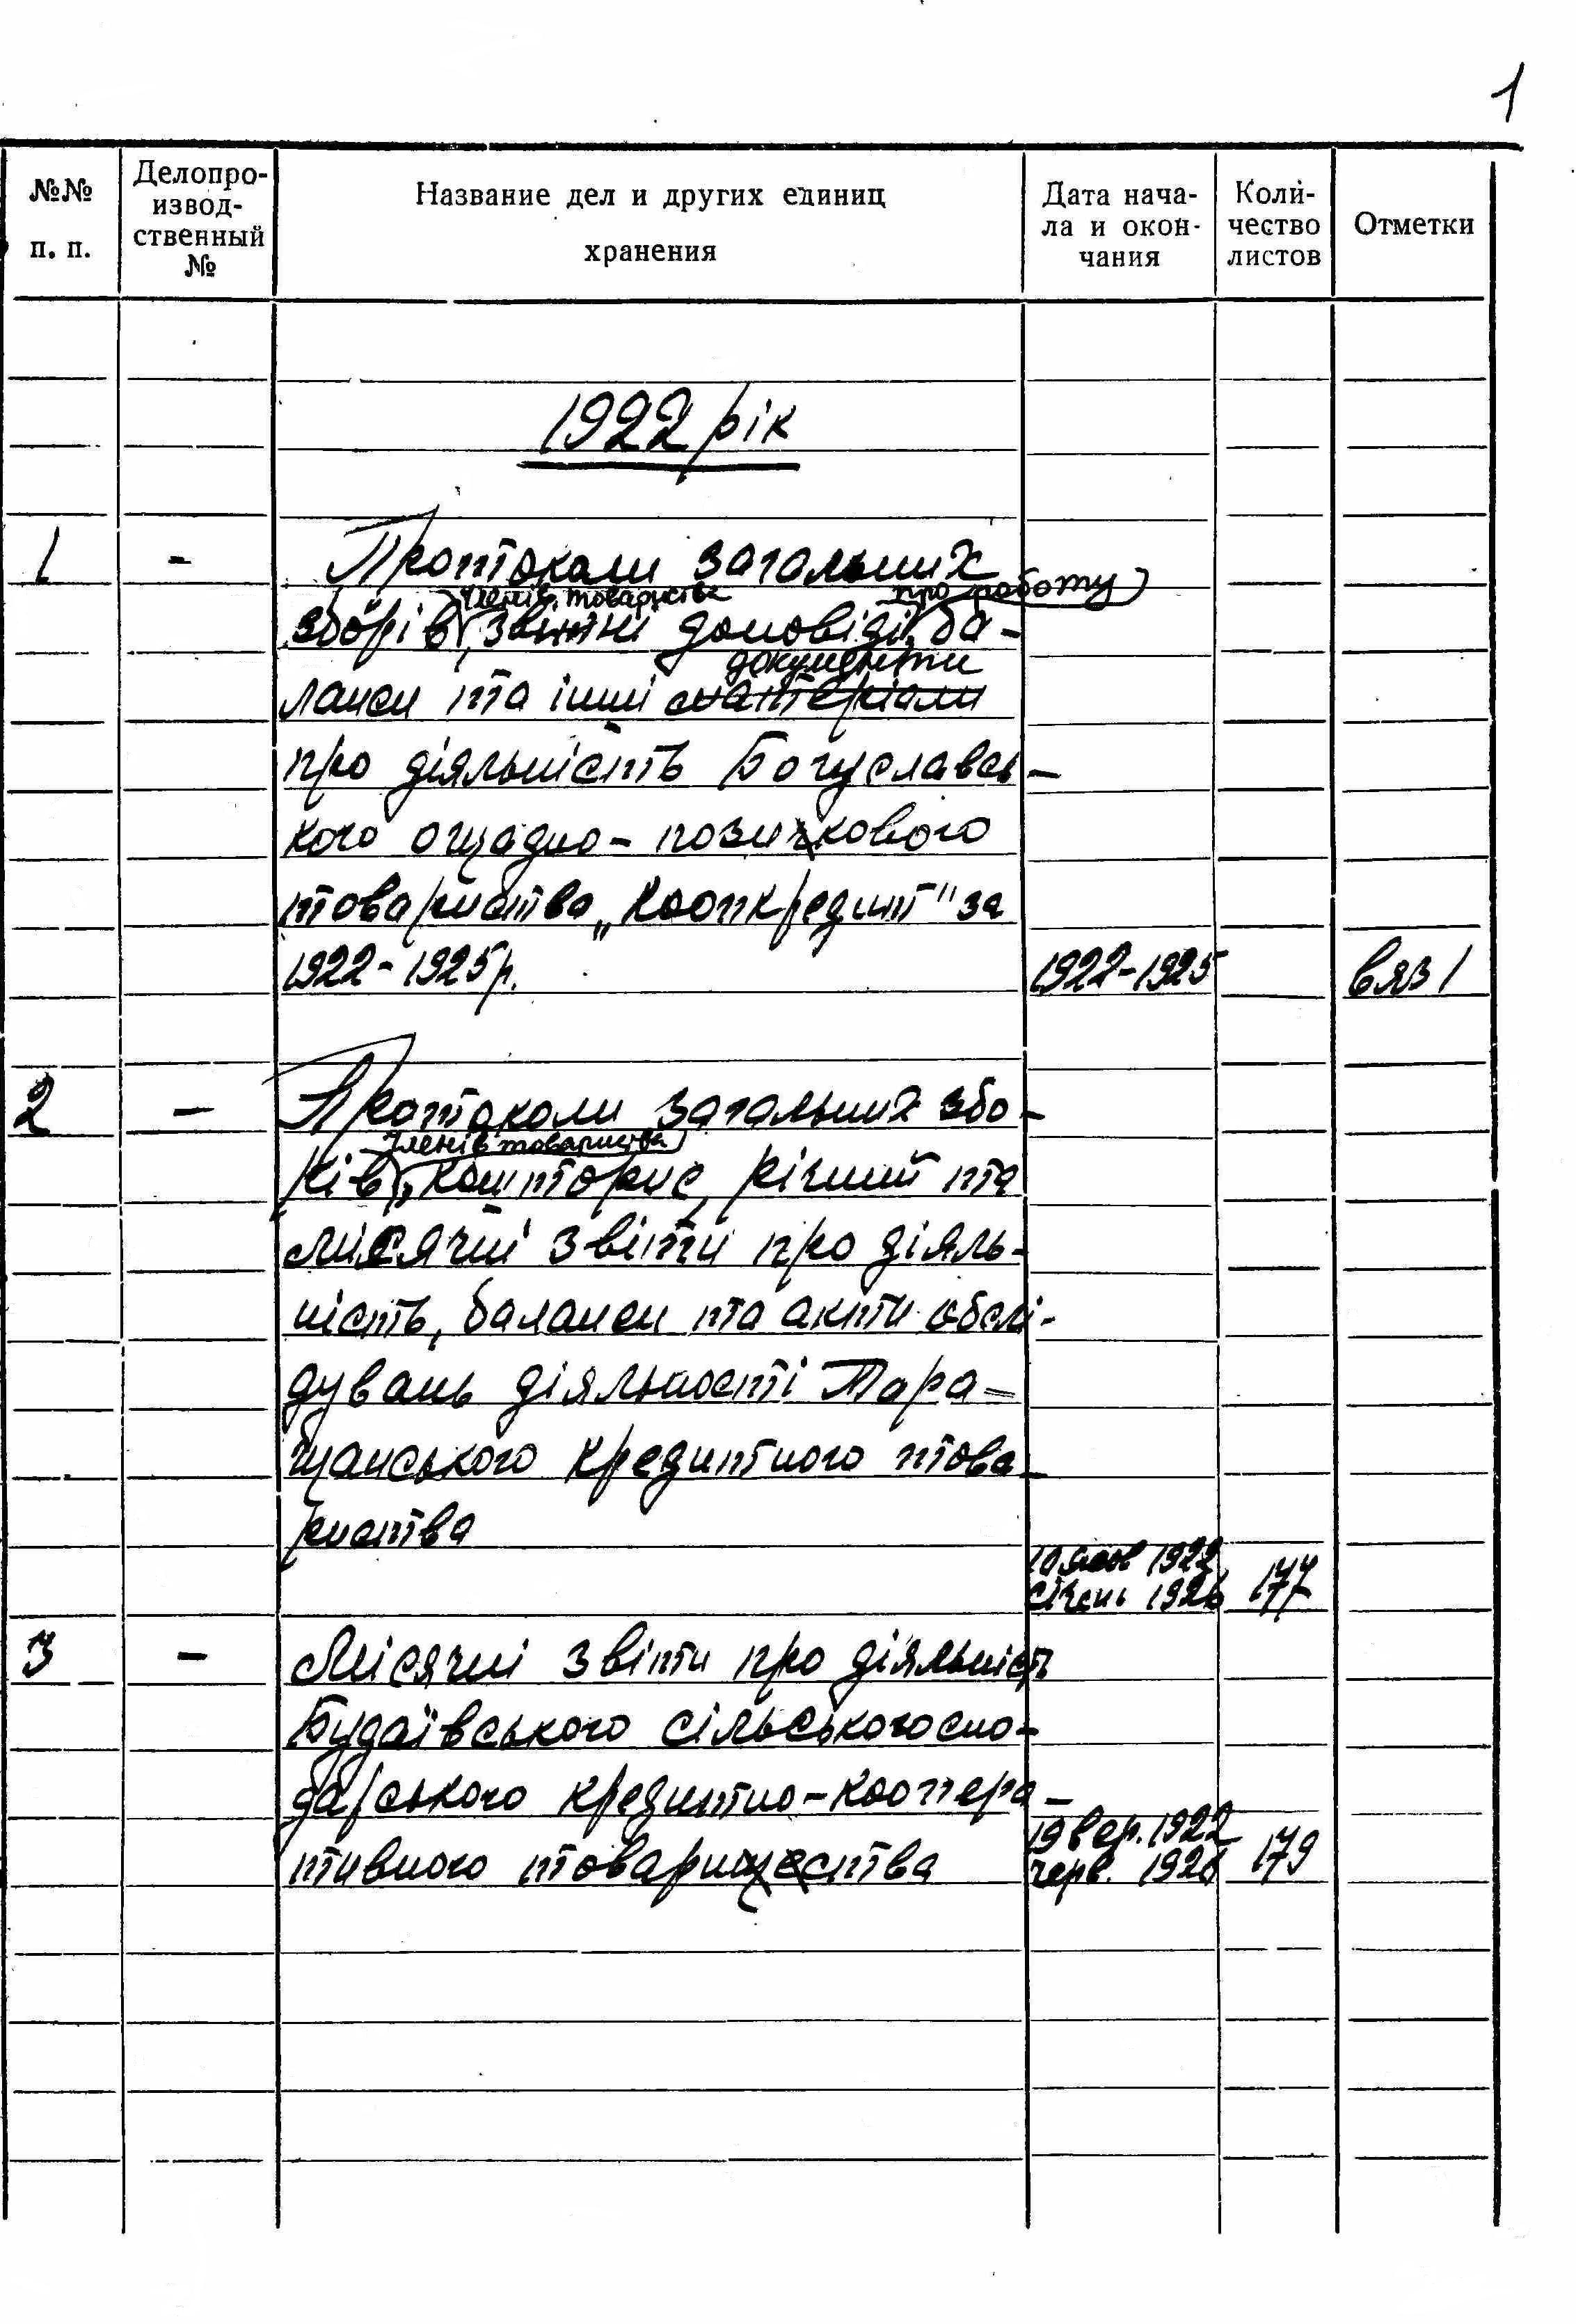 1
№№ п. п.
Делопро-
извод-
ственный
№
Название дел и других единиц
хранения
Дата нача-
ла и окон-
чания
Коли-
чество
листов
Отметки
1922 рік
1 - Протоколи загальних
членів товариства про роботу
зборів, звітні доповіді, ба-
документи
ланси та інші матеріали
про діяльність Богуславсь-
кого ощадно-позичкового
товариства „Коопкредит" за
1922-1925р. 1922-1925 вяз 1
2 - Протоколи загальних збо-
членів товариства
рів, кошторис, річний та
місячні звіти про діяль-
ність, баланси та акти обслі-
дувань діяльності Тара-
щанського кредитного това-
риства
10 1922
січень 1926 177
3 - Місячні звіти про діяльність
Будаївського сільськогоспо-
дарського кредитно-коопера-
19 вер. 1922
тивного товарищества черв. 1926 179